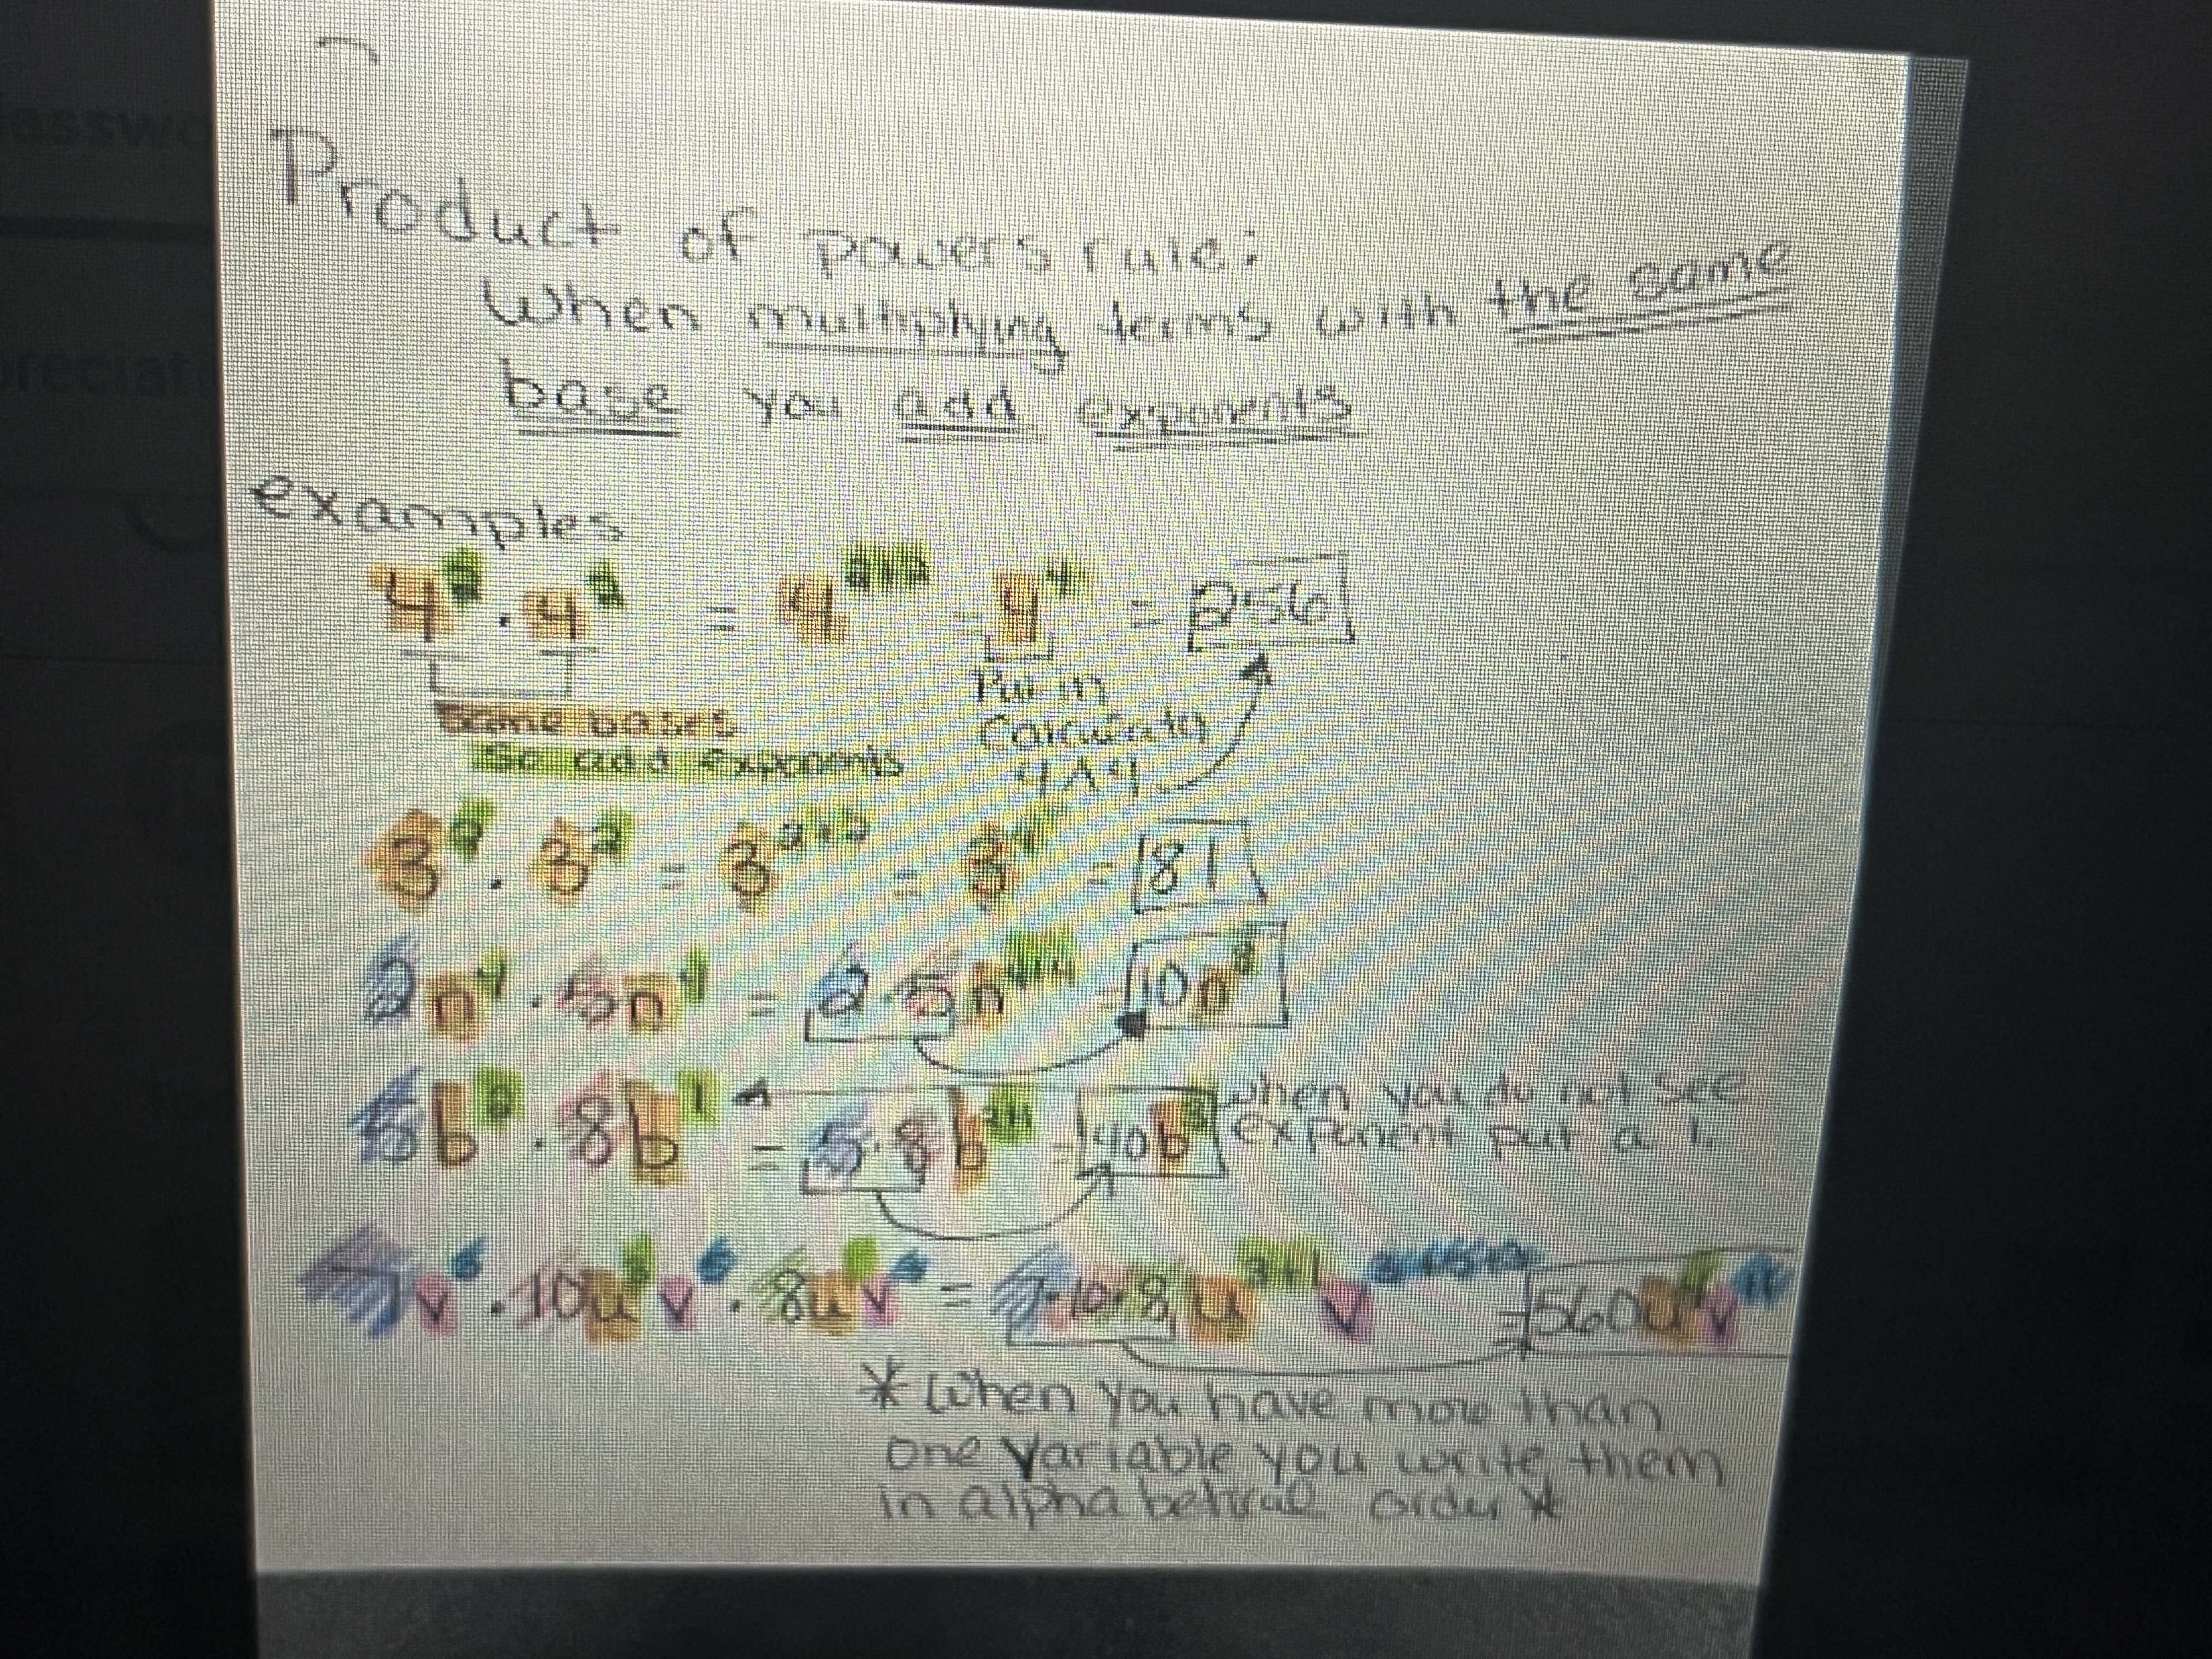 Product of powers rule:
When multiplying terms with the same
base you add exponents
examples
4² · 4² = 4²⁺² = 4⁴ = 256
Same bases
So add exponents
Put in
Calculator
4^4
3² · 3² = 3²⁺² = 3⁴ = 81
2n⁴ · 5n⁴ = 2·5n⁴⁺⁴ = 10n⁸
5b² · 8b¹ = 5·8b²⁺¹ = 40b³
when you do not see
exponent put a 1.
v · 10u v · 8u v = 7·10·8 u³⁺¹ v = 560u v
* When you have more than
one variable you write them
in alphabetical order *